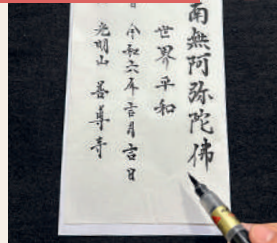 南無阿弥陀佛
世界平和
令和六年吉月吉日
光明山 善尊寺